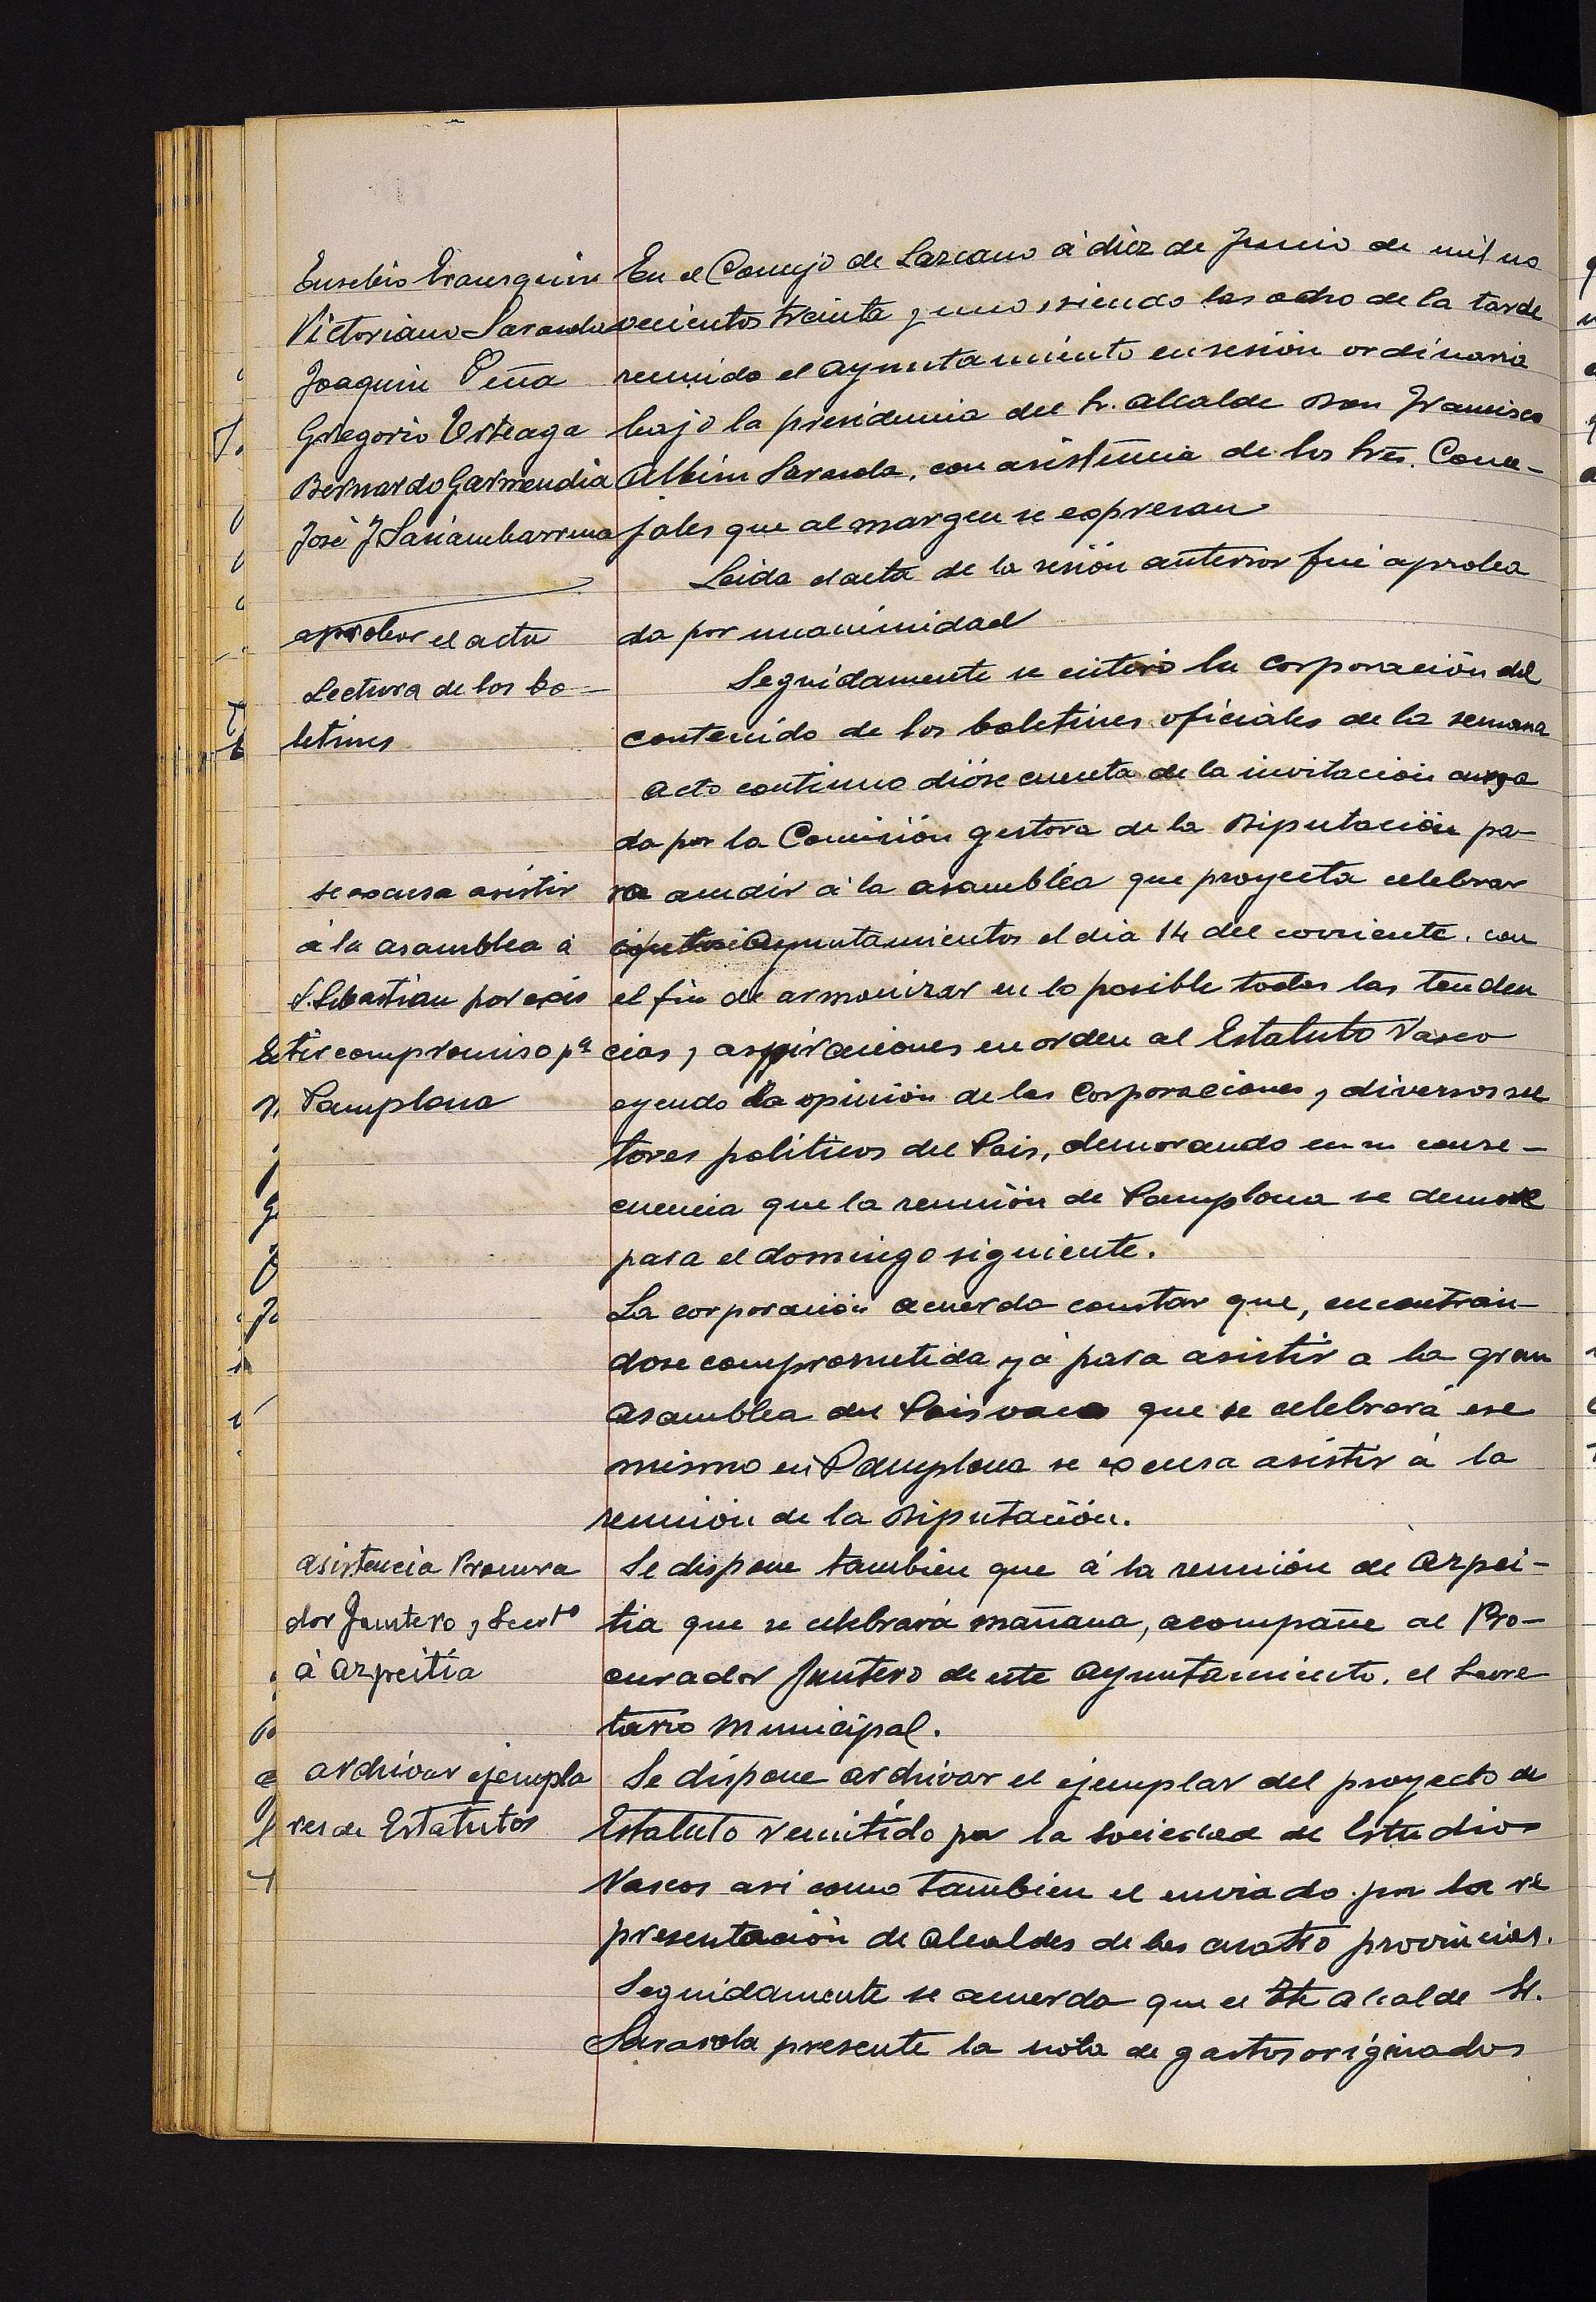 Eusebio Erausquin
Victoriano Sarasola
Joaquin Peña
Gregorio Urteaga
Bernardo Garmendia
José J Sasiambarrena
aprobar el acta
Lectura de los bo-
letines
se excusa asistir
á la asamblea á
S. Sebastian por exis
tir compromiso pª
Pamplona
asistencia Procura
dor Juntero y Secrtº
á Azpeitia
archivar ejempla
res de Estatutos
En el Concejo de Lazcano á diez de Junio de mil no
vecientos treinta y uno siendo las ocho de la tarde
reunido el ayuntamiento en sesión ordinaria
bajo la presidencia del Sr. alcalde Don Francisco
Albin Sarasola, con asistencia de los Sres. Conce-
jales que al margen se expresan
Leida el acta de la sesión anterior fué aproba
da por unanimidad
Seguidamente se enteró la corporación del
contenido de los boletines oficiales de la semana
Acto continuo dióse cuenta de la invitación cursa
da por la Comisión gestora de la Diputación pa-
ra acudir á la asamblea que proyecta celebrar
Ayuntamientos el dia 14 del corriente. con
el fin de armonizar en lo posible todas las tenden
cias y aspiraciones en orden al Estatuto Vasco
oyendo la opinión de las Corporaciones y diversos sec
tores politicos del Pais, demorando en su conse-
cuencia que la reunión de Pamplona se demore
para el domingo siguiente.
La corporación acuerda constar que, encontrán-
dose comprometida yá para asistir a la gran
asamblea del Pais vasco que se celebrará ese
mismo en Pamplona se excusa asistir á la
reunión de la Diputación.
Se dispone tambien que á la reunión de Azpei-
tia que se celebrará mañana, acompañe al Pro-
curador Juntero de este Ayuntamiento. el Secre
tario municipal.
Se dispone archivar el ejemplar del proyecto de
Estatuto remitido por la Sociedad de Estudios
Vascos asi como tambien el enviado por la re
presentación de alcaldes de las cuatro provincias.
Seguidamente se acuerda que el Tte alcalde Sr.
Sarasola presente la nota de gastos originados